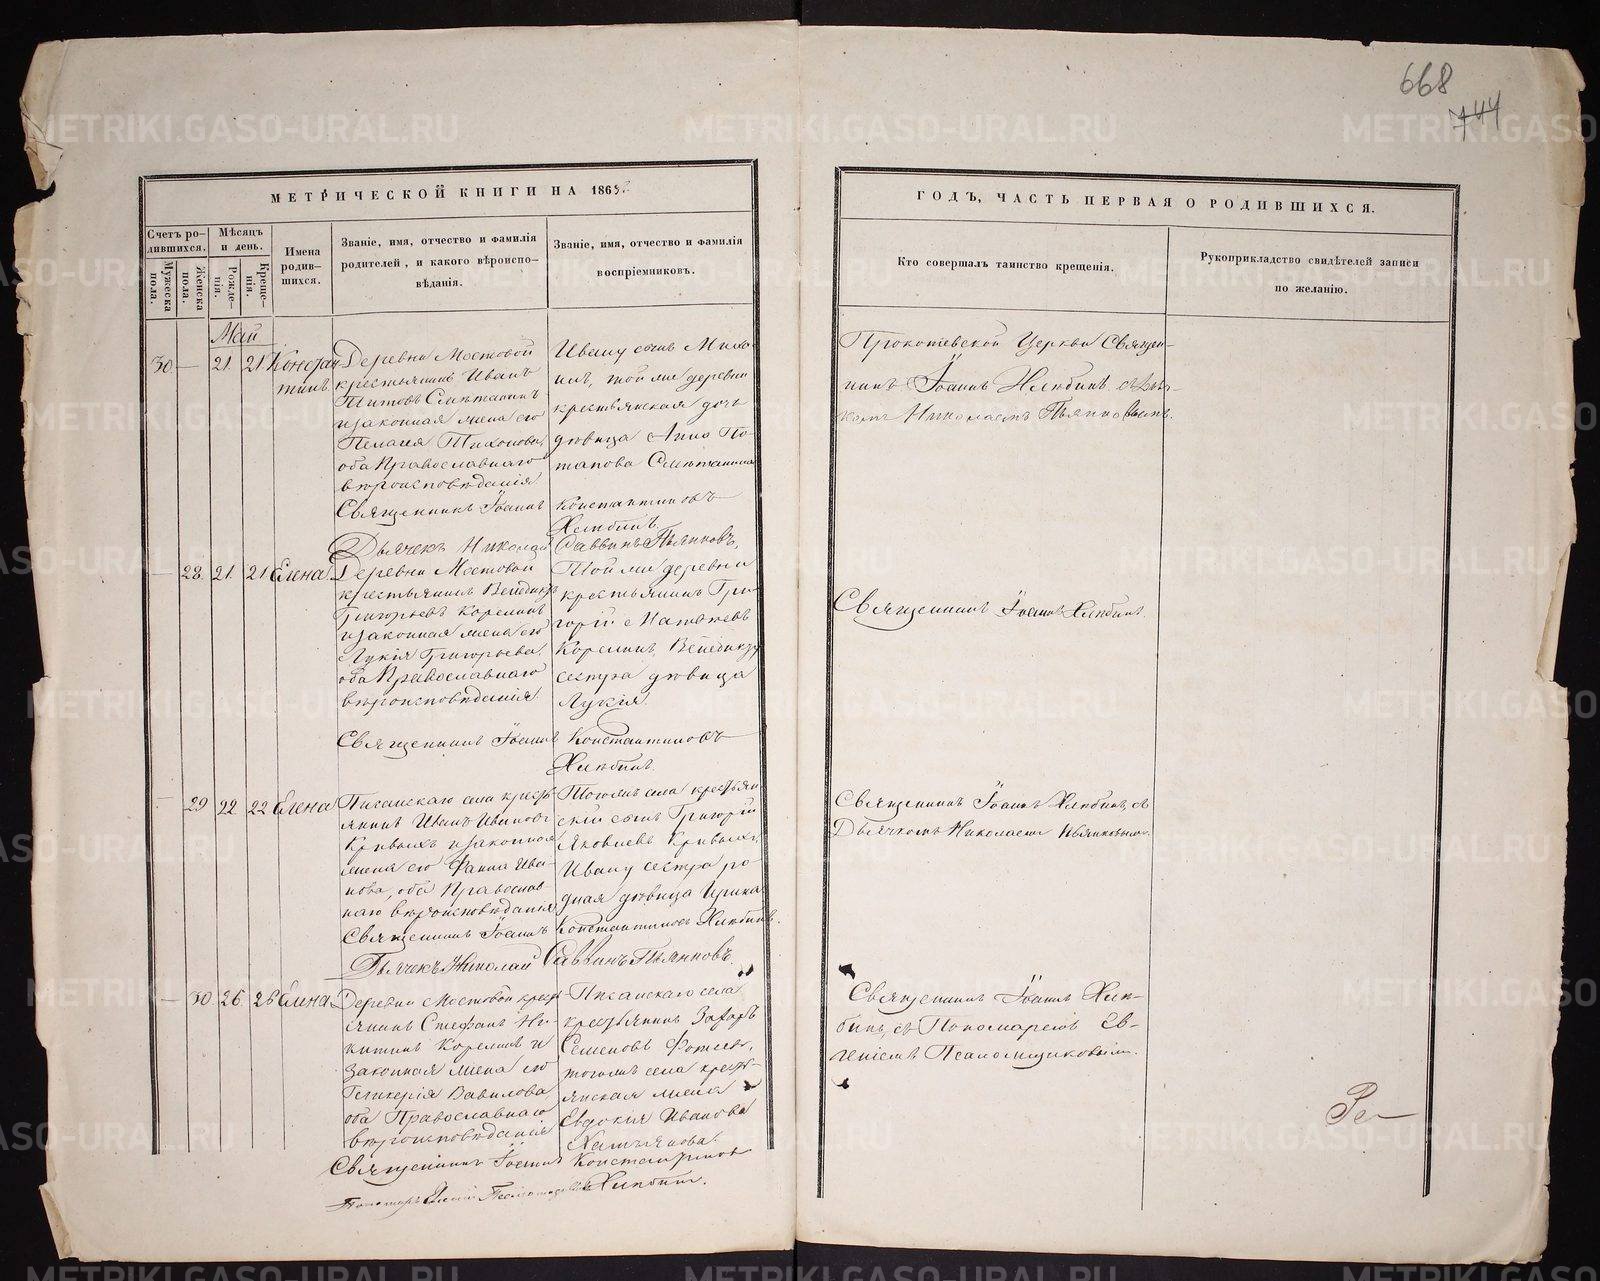 668
744
МЕТРИЧЕСКОЙ КНИГИ НА 186
ГОДЪ, ЧАСТЬ ПЕРВАЯ О РОДИВШИХСЯ.
Счетъ ро-
дившихся.
Мужеска
пола.
Женска
пола.
Мѣсяцъ
и день.
Рожде-
нія.
Креще-
нія.
Имена
родив-
шихся.
Званіе, имя, отчество и фамилія
родителей, и какого вѣроиспо-
вѣданія.
Званіе, имя, отчество и фамилія
воспріемниковъ.
Кто совершалъ таинство крещенія.
Рукоприкладство свидѣтелей записи
по желанію.
Май
30 — 21. 21. Констан-
тинъ
Деревни Мостовой
крестьянинъ Иванъ
Титовъ Смѣтанинъ
и законная жена его
Пелагія Тихонова,
оба Православнаго
вѣроисповѣданія
Ивану сынъ Миха-
илъ, той же деревни
крестьянская дочь
дѣвица Анна По-
тапова Смѣтанина
Прокопьевской Церкви Священ-
никъ Іоаннъ Хлѣбинъ съ Дья-
комъ Николаемъ Пьянковымъ.
Священникъ Іоаннъ Константиновъ
Хлѣбинъ.
Дьячекъ Николай Саввинъ Пьянковъ.
— 28. 21. 21 Елена
Деревни Мостовой
крестьянинъ Венедиктъ
Григорьевъ Корелинъ
и законная жена его
Лукія Григорьева,
оба Православнаго
вѣроисповѣданія
Той же деревни
крестьянинъ Гри-
горій
Корелинъ, Венедикту
сестра дѣвица
Лукія.
Священникъ Іоаннъ Хлѣбинъ.
Священникъ Іоаннъ Константиновъ
Хлѣбинъ.
— 29 22 22 Елена
Писанскаго села кресть-
янинъ Иванъ Ивановъ
Кривыхъ и законная
жена его Фаина Ива-
нова, оба Православ-
наго вѣроисповѣданія
Тогожъ села крестьян
скій сынъ Григорій
Яковлевъ Кривыхъ,
Ивану сестра ро-
дная дѣвица Ирина
Священникъ Іоаннъ Хлѣбинъ съ
Дьячкомъ Николаемъ Пьянковымъ.
Священникъ Іоаннъ Константиновъ Хлѣбинъ.
Дьячекъ Николай Саввинъ Пьянковъ.
— 30 26 26 Елена
Деревни Мостовой крест-
янинъ Стефанъ Ни-
китинъ Корелинъ и
законная жена его
Гликерія Вавилова,
оба Православнаго
вѣроисповѣданія
Писанскаго села
крестьянинъ Захаръ
Семеновъ
тогожъ села кресть-
янская жена
Евдокія Иванова
Священникъ Іоаннъ Хлѣ-
бинъ, съ Пономаремъ Ев-
геніемъ Псаломщиковымъ.
Священникъ Іоаннъ Константиновъ
Хлѣбинъ.
Ре—
METRIKI.GASO-URAL.RU